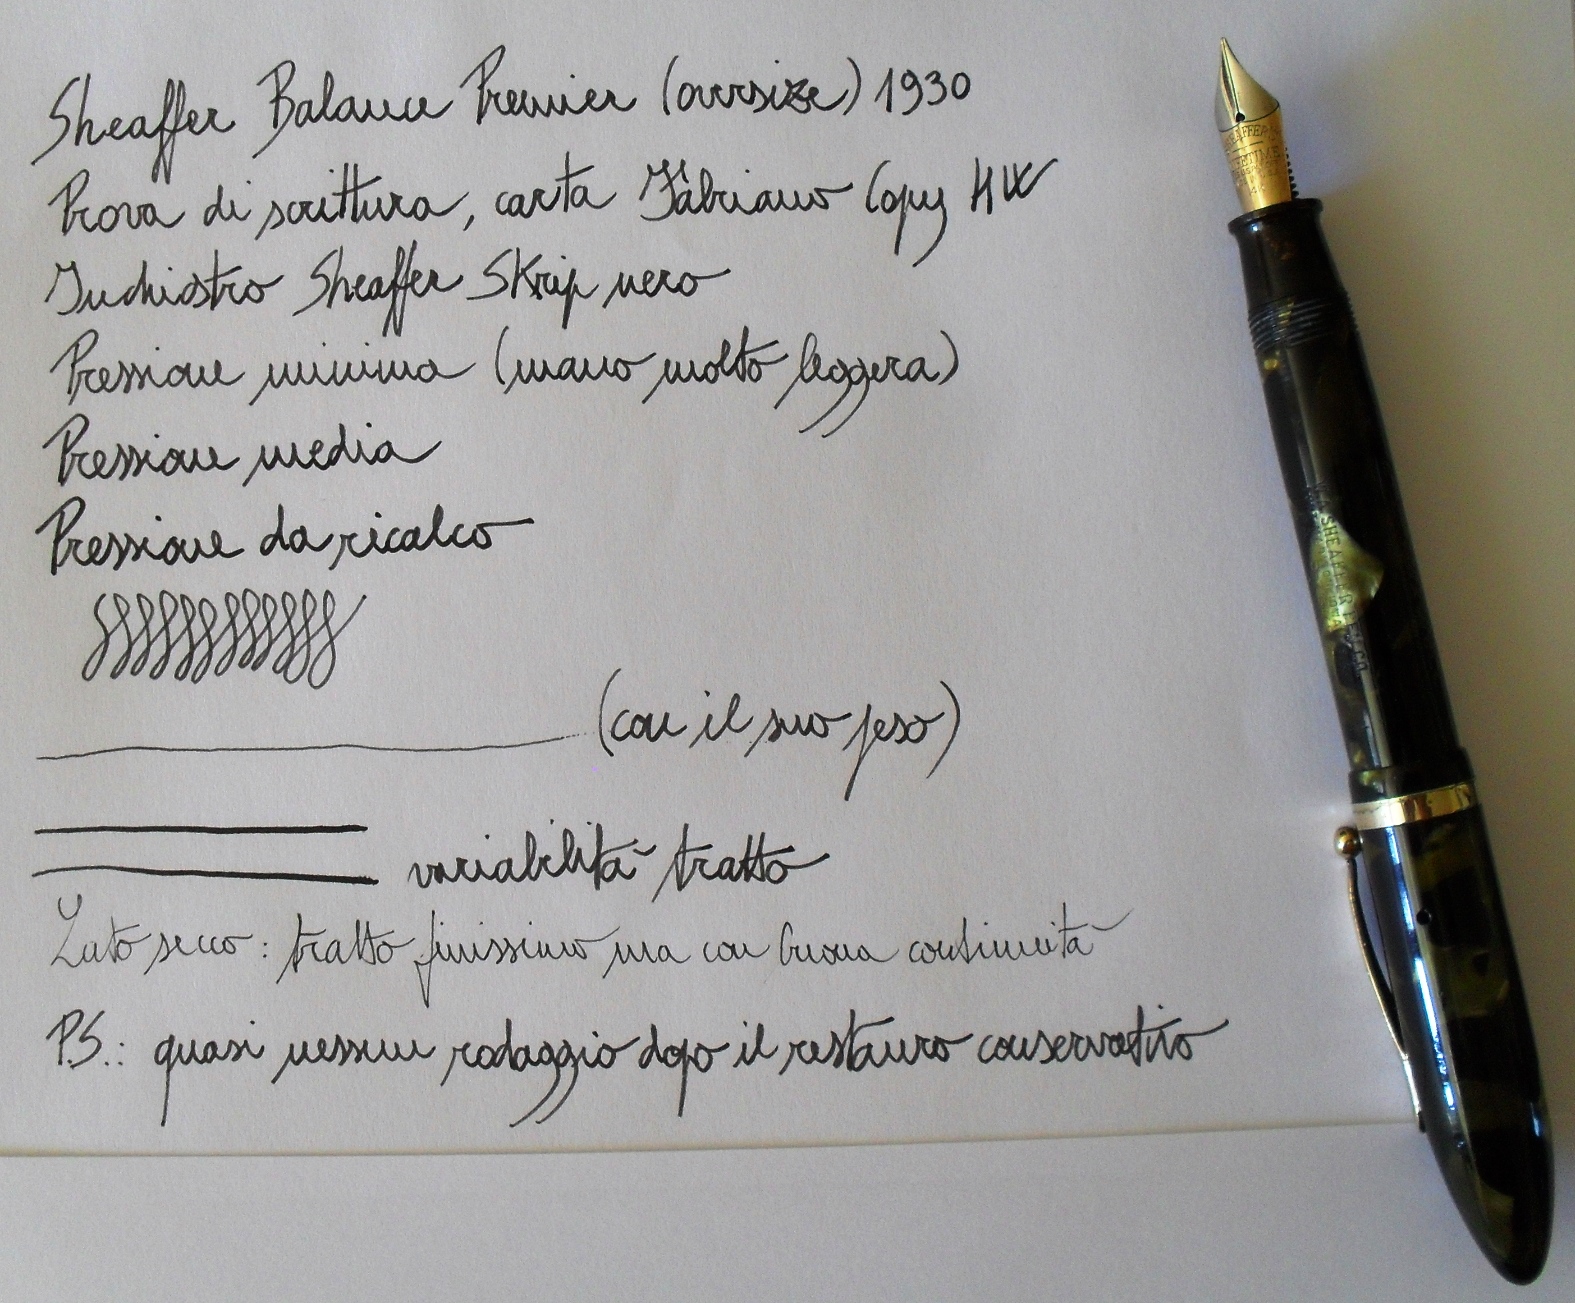 Sheaffer Balance Premier (oversize) 1930
Prova di scrittura, carta Fabriano Copy HW
Inchiostro Sheaffer Skrip nero
Pressione minima (mano molto leggera)
Pressione media
Pressione da ricalco
(con il suo peso)
variabilità tratto
Lato secco: tratto finissimo ma con buona continuità
P.S.: quasi nessun rodaggio dopo il restauro conservativo
SHEAFFER
SHEAFFER PEN CO